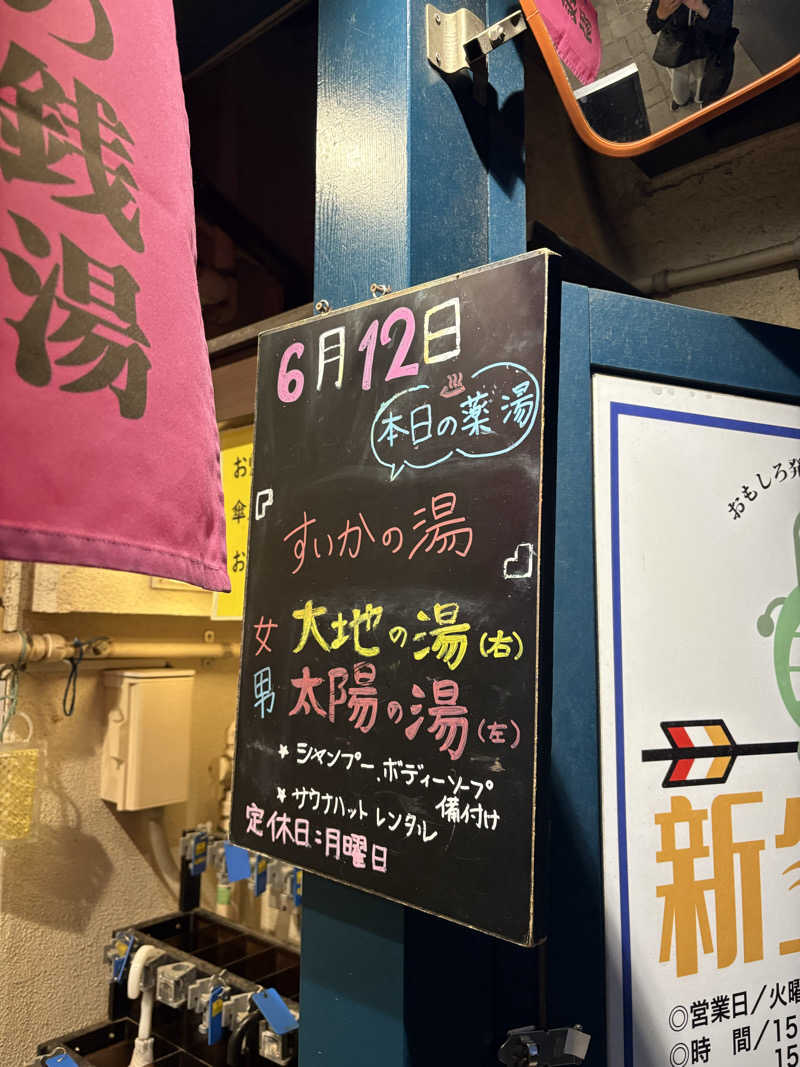 銭湯
6月12日
本日の薬湯
すいかの湯
女 大地の湯(右)
男 太陽の湯(左)
★シャンプー、ボディーソープ
備付け
★サウナハットレンタル
定休日:月曜日
お
傘
お
おもしろ発
新生
◎営業日/火曜
◎時 間/15
15